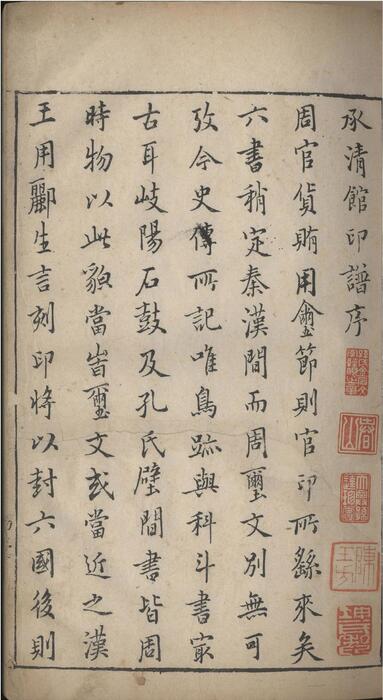 承清館印譜序
周官貨賄用璽節則官印所繇來矣
六書稍定秦漢間而周璽文別無可
攷今史傳所記唯鳥跡與科斗書㝡
古耳岐陽石鼓及孔氏壁間書皆周
時物以此貌當旹璽文或當近之漢
王用酈生言刻印將以封六國後則